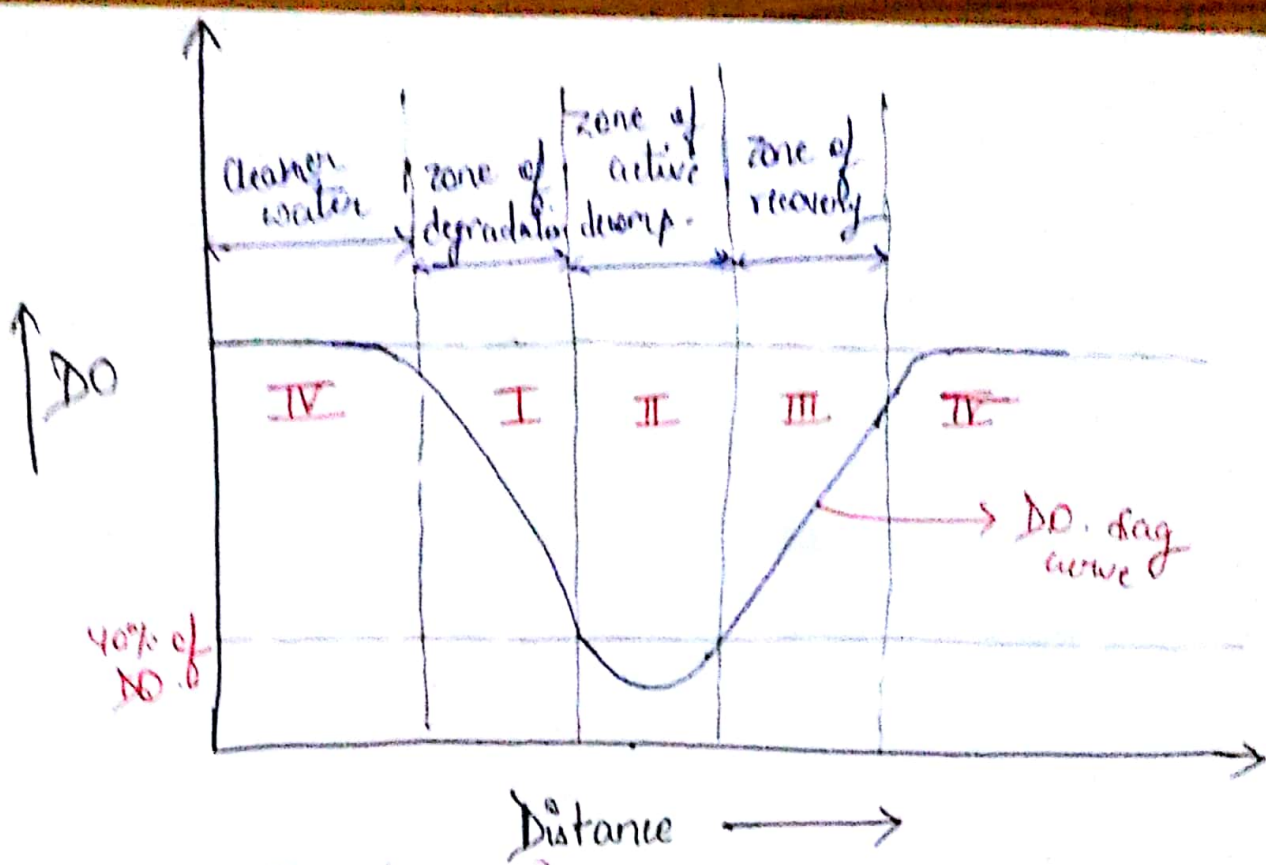 Cleaner
water
zone of
degradation
zone of
active
decomp.
zone of
recovery
DO
IV
I
II
III
IV
DO. sag
curve
40% of
DO.
Distance